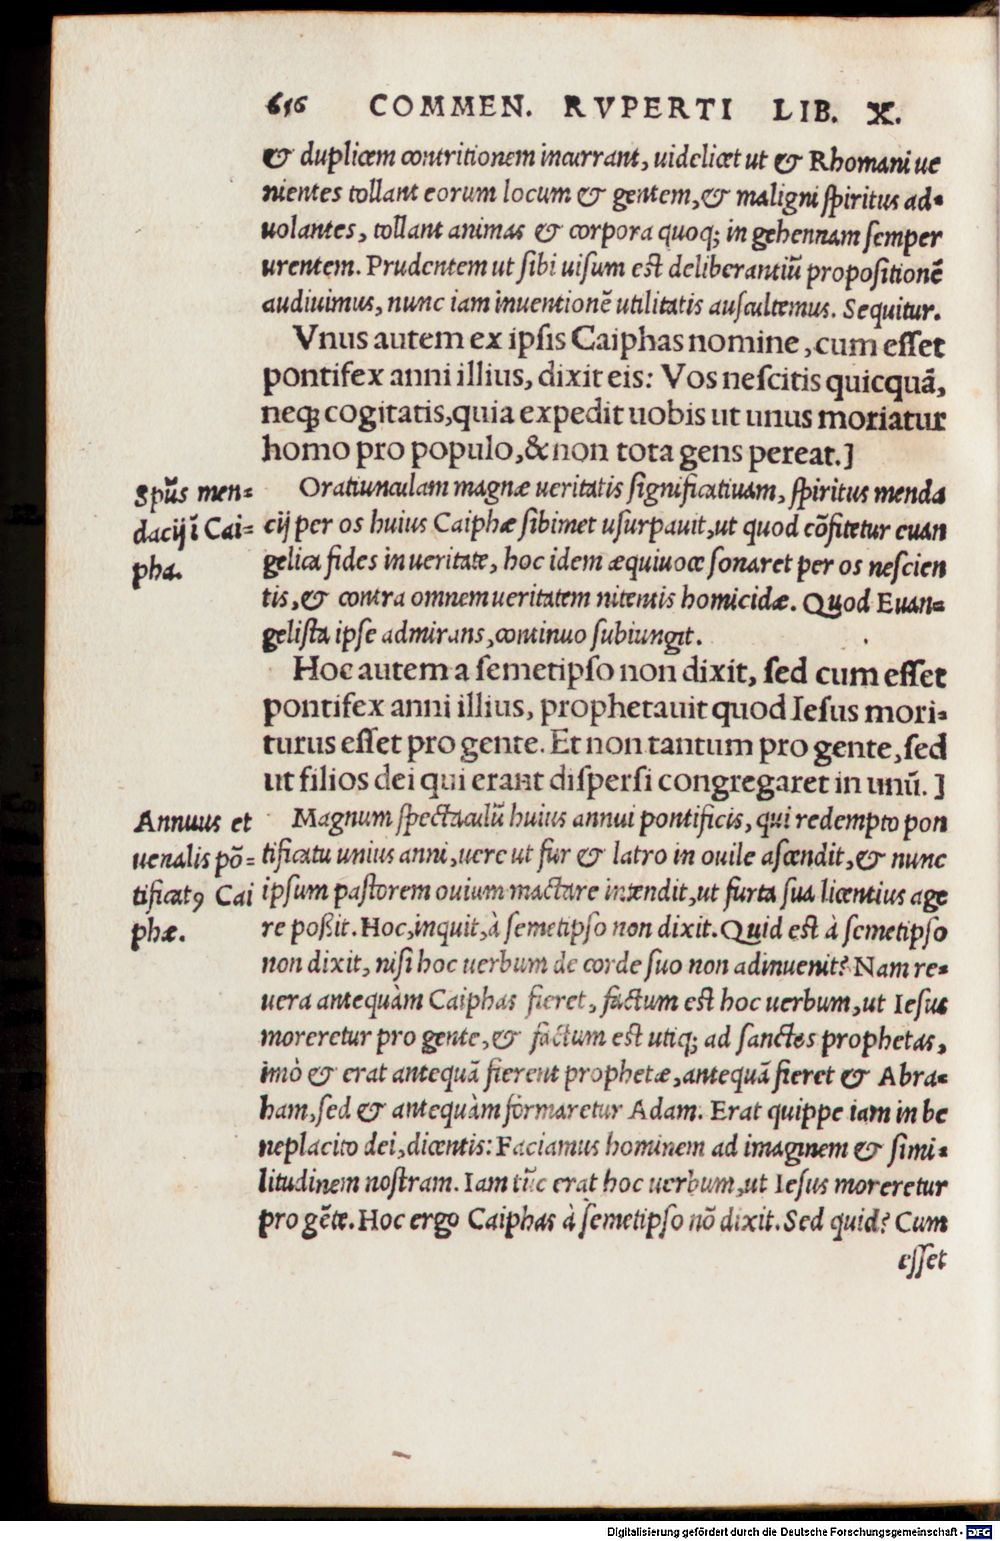 656 COMMEN. RVPERTI LIB. X.
& duplicem contritionem incurrant, uidelicet ut & Rhomani ue
nientes tollant eorum locum & gentem, & maligni ſpiritus ad-
uolantes, tollant animas & corpora quoq; in gehennam ſemper
urentem. Prudentem ut ſibi uiſum eſt deliberantiũ propoſitionẽ
audiuimus, nunc iam inuentionẽ utilitatis auſcultemus. Sequitur.
Vnus autem ex ipſis Caiphas nomine, cum eſſet
pontifex anni illius, dixit eis: Vos neſcitis quicquã,
neq; cogitatis, quia expedit uobis ut unus moriatur
homo pro populo, & non tota gens pereat.]
Spũs men-
dacij ĩ Cai-
pha.
Oratiunculam magnæ ueritatis ſignificatiuam, ſpiritus menda
cij per os huius Caiphæ ſibimet uſurpauit, ut quod cõfitetur euan
gelica fides in ueritate, hoc idem æquiuoce ſonaret per os neſcien
tis, & contra omnem ueritatem nitentis homicidæ. Quod Euan-
geliſta ipſe admirans, continuo ſubiungit.
Hoc autem a ſemetipſo non dixit, ſed cum eſſet
pontifex anni illius, prophetauit quod Ieſus mori-
turus eſſet pro gente. Et non tantum pro gente, ſed
ut filios dei qui erant diſperſi congregaret in unũ.]
Annuus et
uenalis põ-
tificatꝰ Cai
phæ.
Magnum ſpectaculũ huius annui pontificis, qui redempto pon
tificatu unius anni, uere ut fur & latro in ouile aſcendit, & nunc
ipſum paſtorem ouium mactare intendit, ut furta ſua licentius age
re poßit. Hoc, inquit, à ſemetipſo non dixit. Quid eſt à ſemetipſo
non dixit, niſi hoc uerbum de corde ſuo non adinuenit? Nam re-
uera antequàm Caiphas fieret, factum eſt hoc uerbum, ut Ieſus
moreretur pro gente, & factum eſt utiq; ad ſanctos prophetas,
imò & erat antequã fierent prophetæ, antequã fieret & Abra-
ham, ſed & antequàm formaretur Adam. Erat quippe iam in be
neplacito dei, dicentis: Faciamus hominem ad imaginem & ſimi-
litudinem noſtram. Iam tũc erat hoc uerbum, ut Ieſus moreretur
pro gẽte. Hoc ergo Caiphas à ſemetipſo nõ dixit. Sed quid? Cum
eſſet
Digitalisierung gefördert durch die Deutsche Forschungsgemeinschaft - DFG